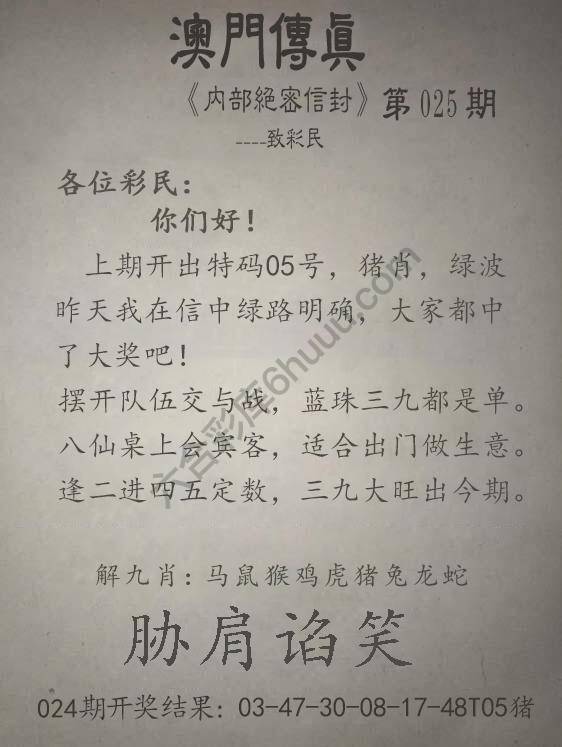 澳門傳眞
《内部絕密信封》第025期
----致彩民
各位彩民：
你们好！
上期开出特码05号，猪肖，绿波
昨天我在信中绿路明确，大家都中
了大奖吧！
摆开队伍交与战，蓝珠三九都是单。
八仙桌上会宾客，适合出门做生意。
逢二进四五定数，三九大旺出今期。
六合彩库6huuu.com
解九肖：马鼠猴鸡虎猪兔龙蛇
胁肩谄笑
024期开奖结果：03-47-30-08-17-48T05猪